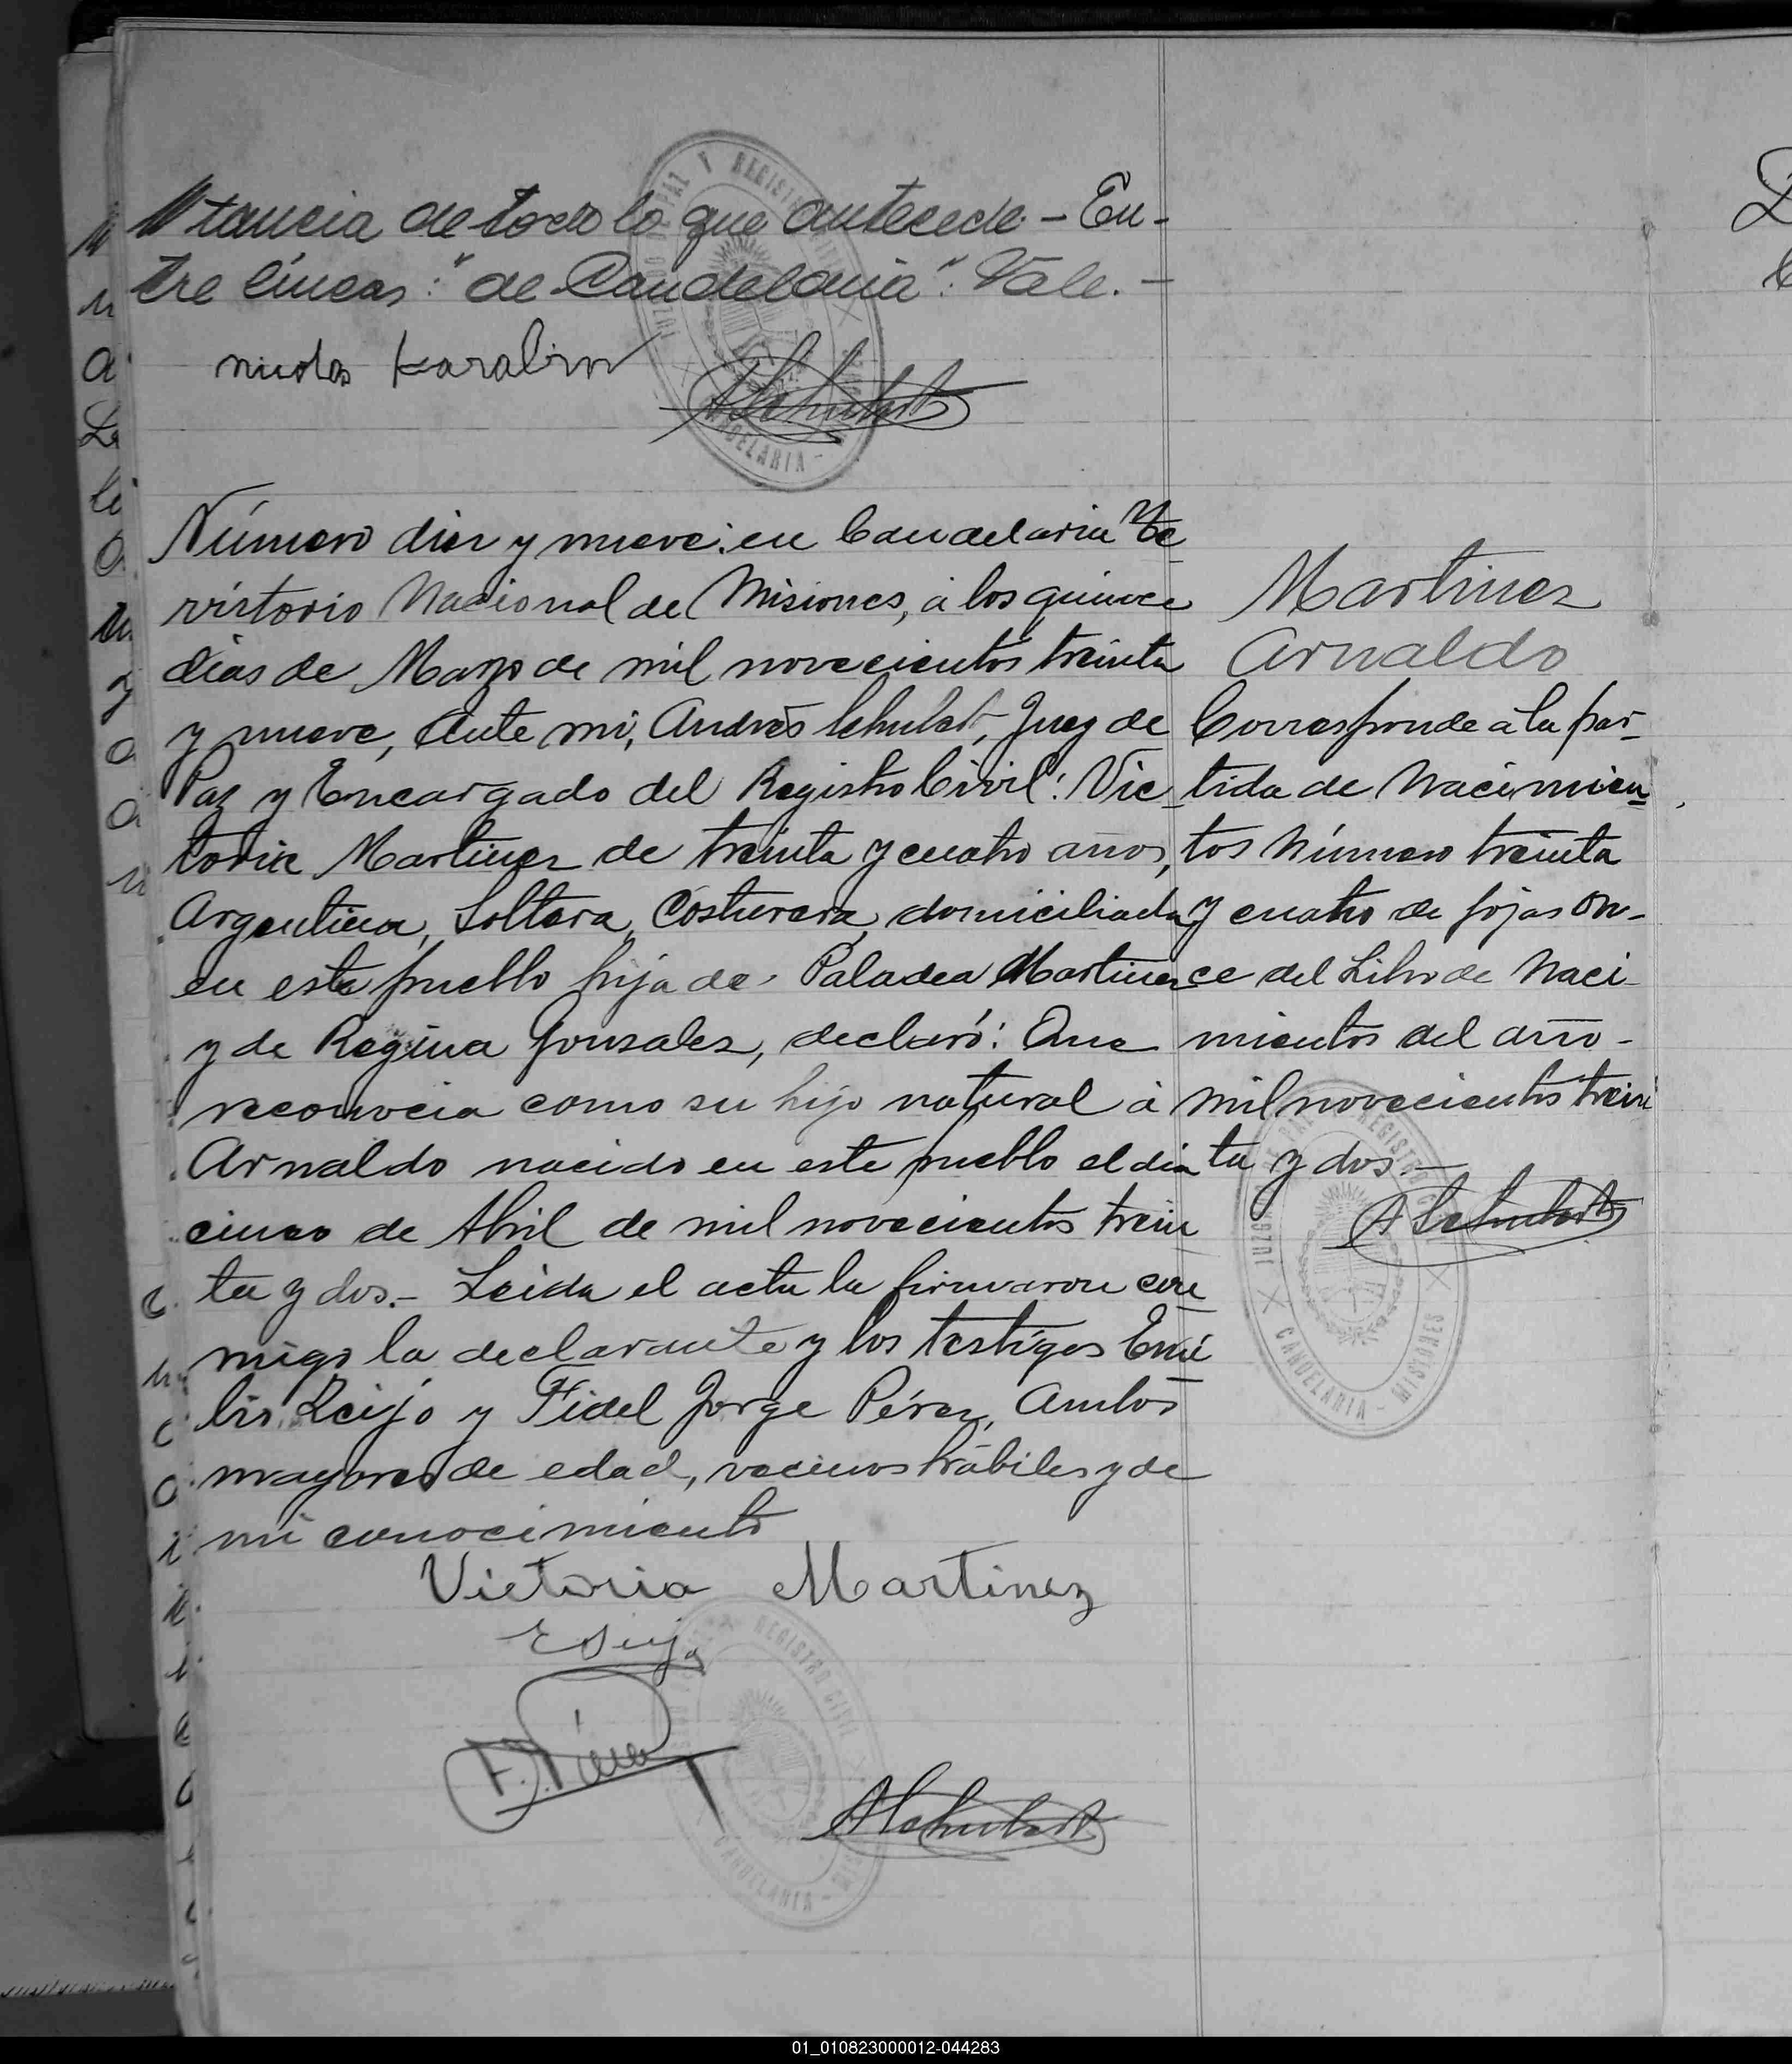 tancia de todo lo que antecede.- En-
tre líneas: "de Candelaria": Vale.-
nicolas Karabin
ASchubert
Número diez y nueve: en Candelaria Te
rristorio Nacional de Misiones, á los quince
dias de Marzo de mil novecientos treinta
y nueve, Ante mi, Andrés Schubert, Juez de
Paz y Encargado del Registro Civil: Vic
toria Martinez de treinta y cuatro años,
Argentina, Soltera, Costurera, domiciliada
en este pueblo hija de Paladea Martinez
y de Regina Gonzalez, declaró: Que
reconocia como su hijo natural á
Arnaldo nacido en este pueblo el dia
cinco de Abril de mil novecientos trein
ta y dos.- Leida el acta la firmaron con
migo la declarante y los testigos Emi
lio Seijo y Fidel Jorge Pérez, Ambos
mayores de edad, vecinos hábiles y de
mi conocimiento
Victoria Martinez
ESeijo
F.J.Pérez
ASchubert
Martinez
Arnaldo
Corresponde á la par-
tida de Nacimien
tos Número treinta
y cuatro de fojas On-
ce del Libro de Naci
mientos del año-
mil novecientos trein
ta y dos.-
ASchubert
JUZGADO DE PAZ Y REGISTRO CIVIL
CANDELARIA - MISIONES
01_010823000012-044283